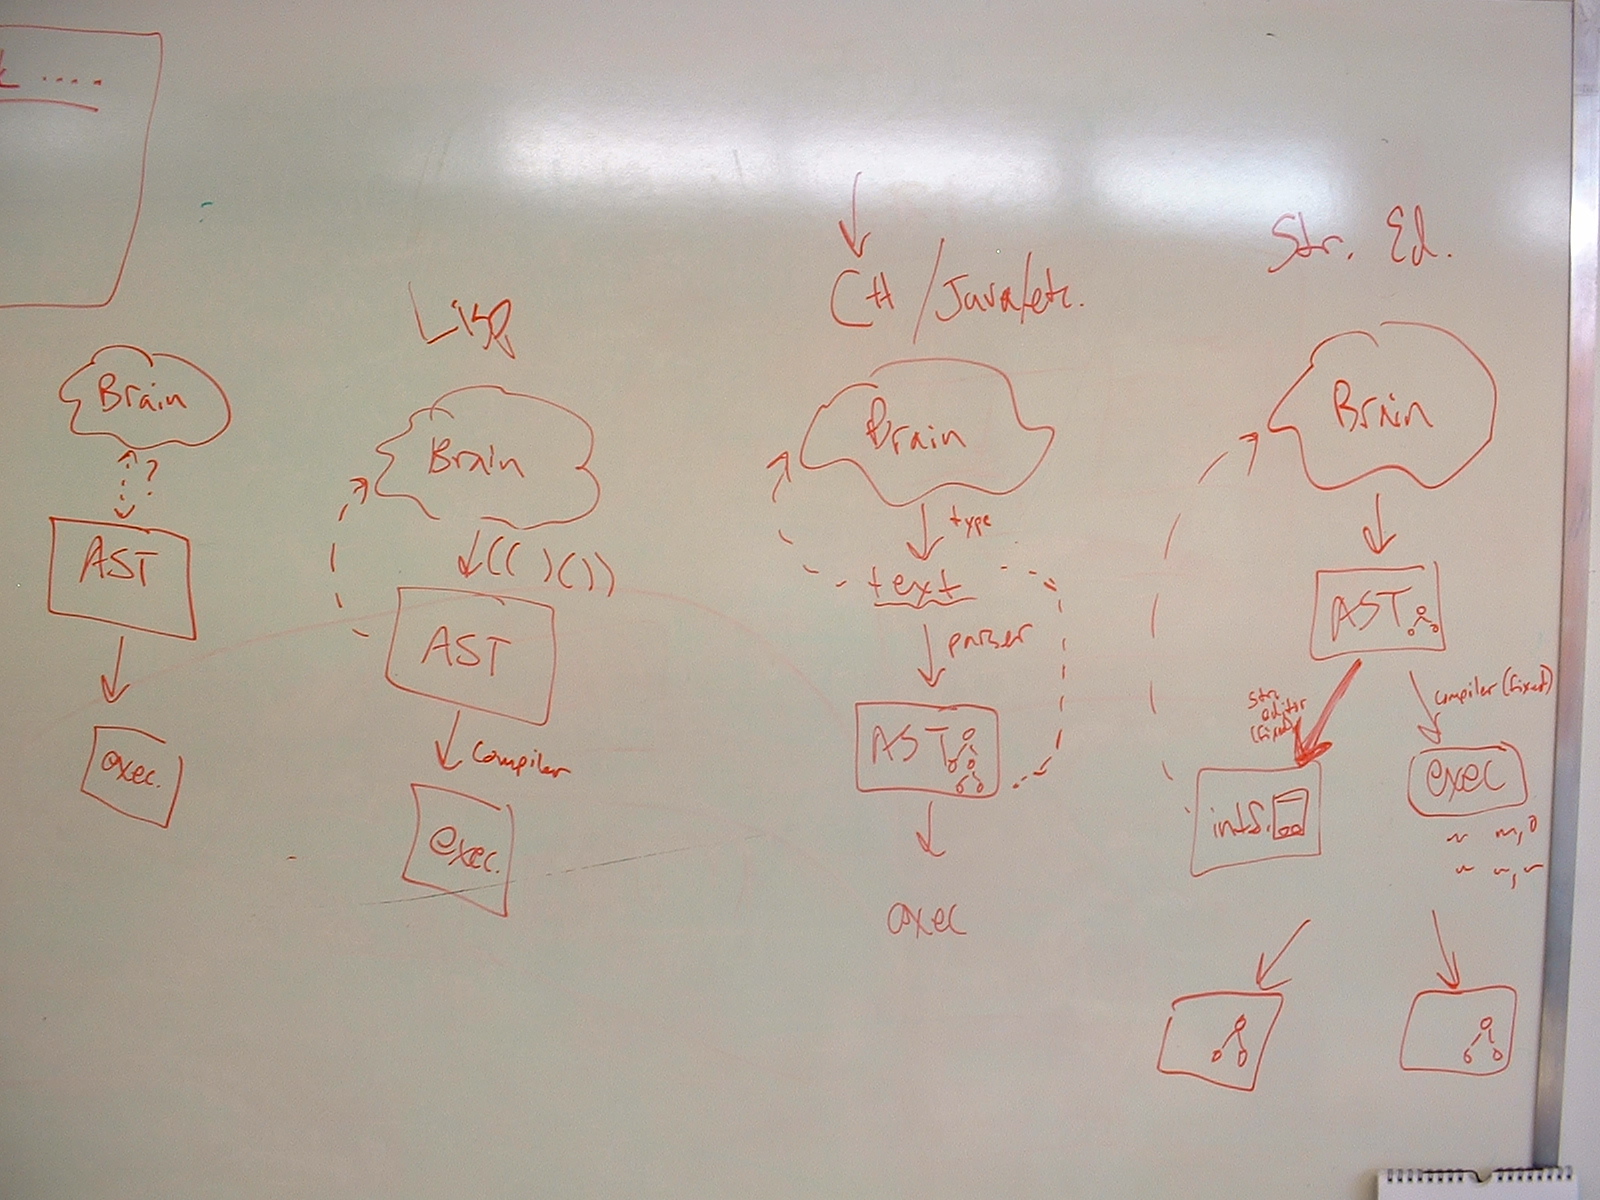 Brain
?
AST
exec.
Lisp
Brain
(( )( ))
AST
Compiler
exec.
C# / Java/etc.
Brain
type
text
parser
AST
exec
Str. Ed.
Brain
AST
str.
editor
(fixed)
compiler (fixed)
intf.
exec